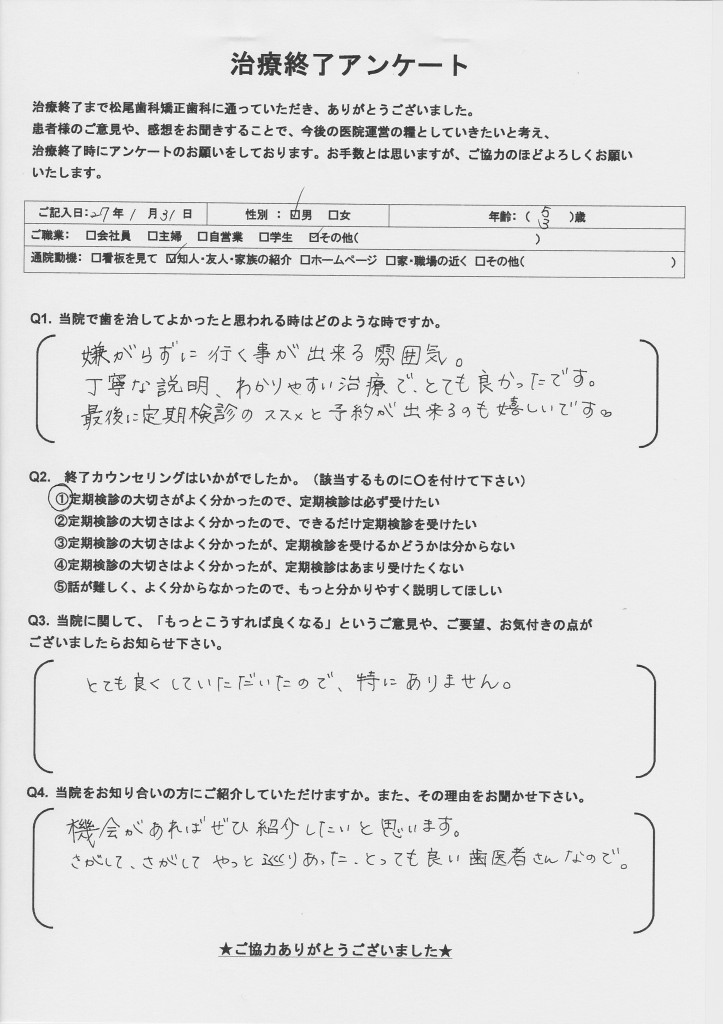 治療終了アンケート
治療終了まで松尾歯科矯正歯科に通っていただき、ありがとうございました。
患者様のご意見や、感想をお聞きすることで、今後の医院運営の糧としていきたいと考え、
治療終了時にアンケートのお願いをしております。お手数とは思いますが、ご協力のほどよろしくお願い
いたします。
ご記入日:27年 1 月 31 日 性別 : ☑男 □女 年齢:( 53 )歳
ご職業: □会社員 □主婦 □自営業 □学生 ☑その他( )
通院動機: □看板を見て ☑知人・友人・家族の紹介 □ホームページ □家・職場の近く □その他( )
Q1. 当院で歯を治してよかったと思われる時はどのような時ですか。
嫌がらずに行く事が出来る雰囲気。
丁寧な説明、わかりやすい治療で、とても良かったです。
最後に定期検診のススメと予約が出来るのも嬉しいです。
Q2. 終了カウンセリングはいかがでしたか。(該当するものに〇を付けて下さい)
①定期検診の大切さがよく分かったので、定期検診は必ず受けたい
②定期検診の大切さはよく分かったので、できるだけ定期検診を受けたい
③定期検診の大切さはよく分かったが、定期検診を受けるかどうかは分からない
④定期検診の大切さはよく分かったが、定期検診はあまり受けたくない
⑤話が難しく、よく分からなかったので、もっと分かりやすく説明してほしい
Q3. 当院に関して、「もっとこうすれば良くなる」というご意見や、ご要望、お気付きの点が
ございましたらお知らせ下さい。
とても良くしていただいたので、特にありません。
Q4. 当院をお知り合いの方にご紹介していただけますか。また、その理由をお聞かせ下さい。
機会があればぜひ紹介したいと思います。
さがして、さがしてやっと巡りあった、とっても良い歯医者さんなので。
★ご協力ありがとうございました★